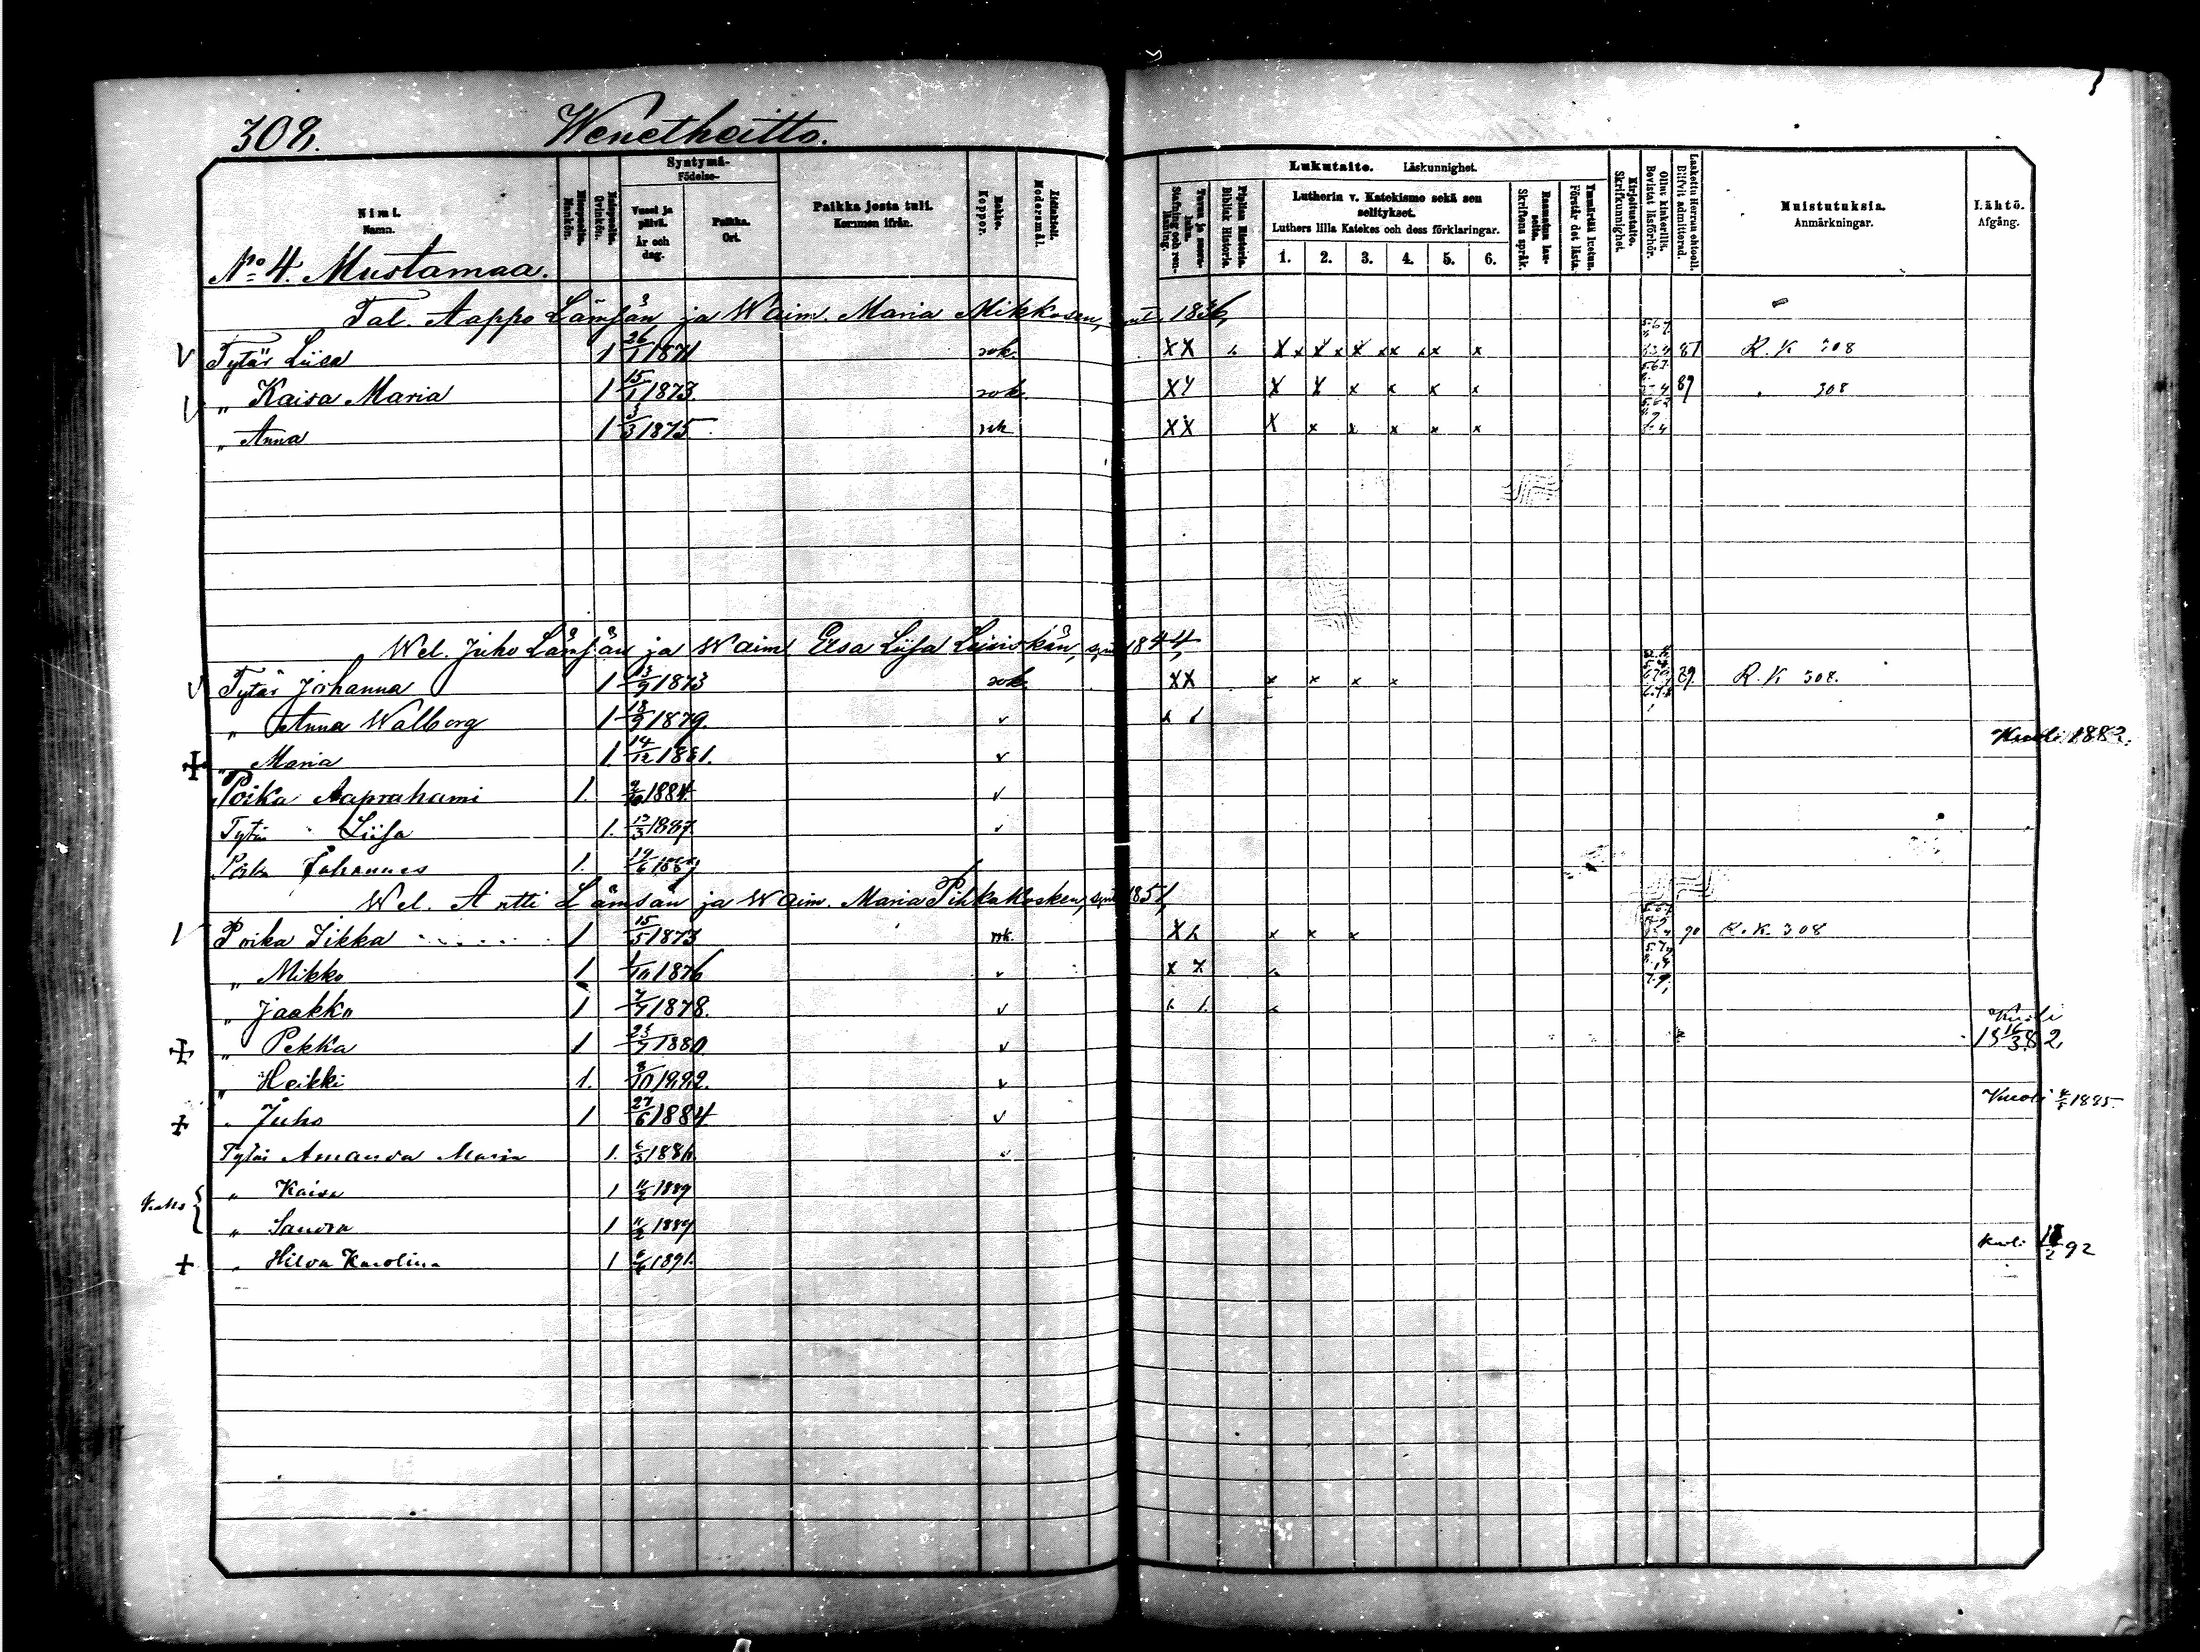 308.
Wenetheitto.
Nimi.
Namn.
Miespuolia.
Mankön.
Naispuolia.
Qvinkön.
Syntymä-
Födelse-
Vuosi ja päivä.
År och dag.
Paikka.
Ort.
Paikka josta tuli.
Kommen ifrån.
Rokko.
Koppor.
Äidinkieli.
Modersmål.
Lukutaito. Läskunnighet.
Tavuu ja suora-luku.
Stafning och ren-läsning.
Piplian Historia.
Biblisk Historia.
Lutherin v. Katekismo sekä sen selitykset.
Luthers lilla Katekes och dess förklaringar.
1. 2. 3. 4. 5. 6.
Raamatun lau-seita.
Skriftens språk.
Ymmärtää luetun.
Förstår det lästa.
Kirjoitustaito.
Skrifkunnighet.
Ollut kinkerillä.
Bevistat läsförhör.
Laskettu Herran ehtooll.
Blifvit admitterad.
Muistutuksia.
Anmärkningar.
Lähtö.
Afgång.
No 4. Mustamaa.
Tal. Aappo Lämsän ja Waim. Maria Mikkosen, synt. 1836,
V Tytär Liisa 1 26/1 1871 rok. XX x x x x x x 87 R. K 308
V „ Kaisa Maria 1 15/1 1873. rok X X x x x x 89 „ 308
„ Anna 1 3/3 1875 rok XX X x x x x x
Wel. Juho Lämsän ja Waim Elsa Liisa Leiviskän, synt 1844,
V Tytär Johanna 1 13/9 1873 rok. XX x x x x 89 R. K 308.
„ Anna Walborg 1 18/9 1879. v
+ „ Maria 1. 14/12 1881. v Kuoli 1882.
Poika Aaprahami 1. 1884. v
Tytär Liisa 1. 13/3 1887. v
Poika Johannes 1. 14/6 1889
Wel. Antti Lämsän ja Waim. Maria Pihkakosken, synt 1851,
V Poika Iikka 1 15/5 1873 rok. x x x 90 R. K. 308
„ Mikko 1 1/10 1876 v
„ Jaakko 1 7/7 1878. v
+ „ Pekka 1 23/7 1880 v Kuoli 18 16/3 82,
„ Heikki 1. 8/10 1882. v
+ „ Juho 1 27/6 1884 v Kuoli 1885.
Tytär Amanda Maria 1. 6/3 1886. v
Kaks { „ Kaisa 1 11/2 1889
„ Sandra 1 11/2 1889
+ „ Hilda Karolina 1 1891. Kuoli 92